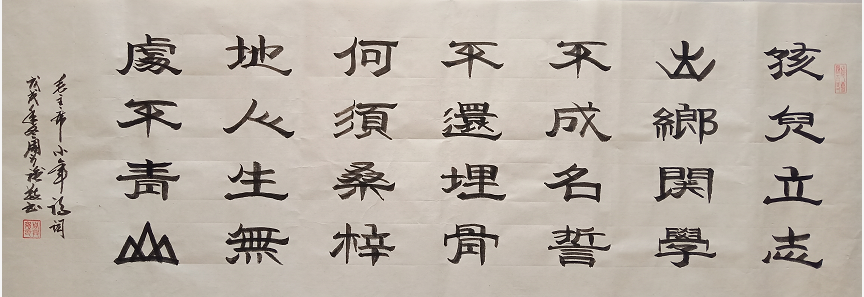 孩兒立志
出鄉関學
不成名誓
不還埋骨
何須桑梓
地人生無
處不青山
毛主席少年诗词
戊戌年冬周书